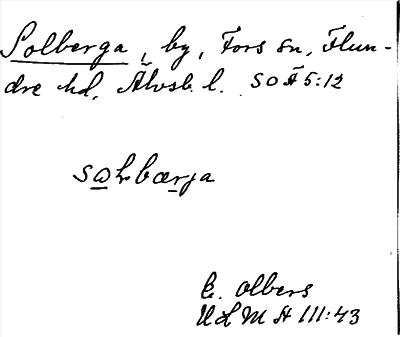 Solberga, by, Fors sn, Flun-
dre hd, Älvsb. l. SOÄ 5:12
sωłbærja
E. Olbers
ULMA 111:43